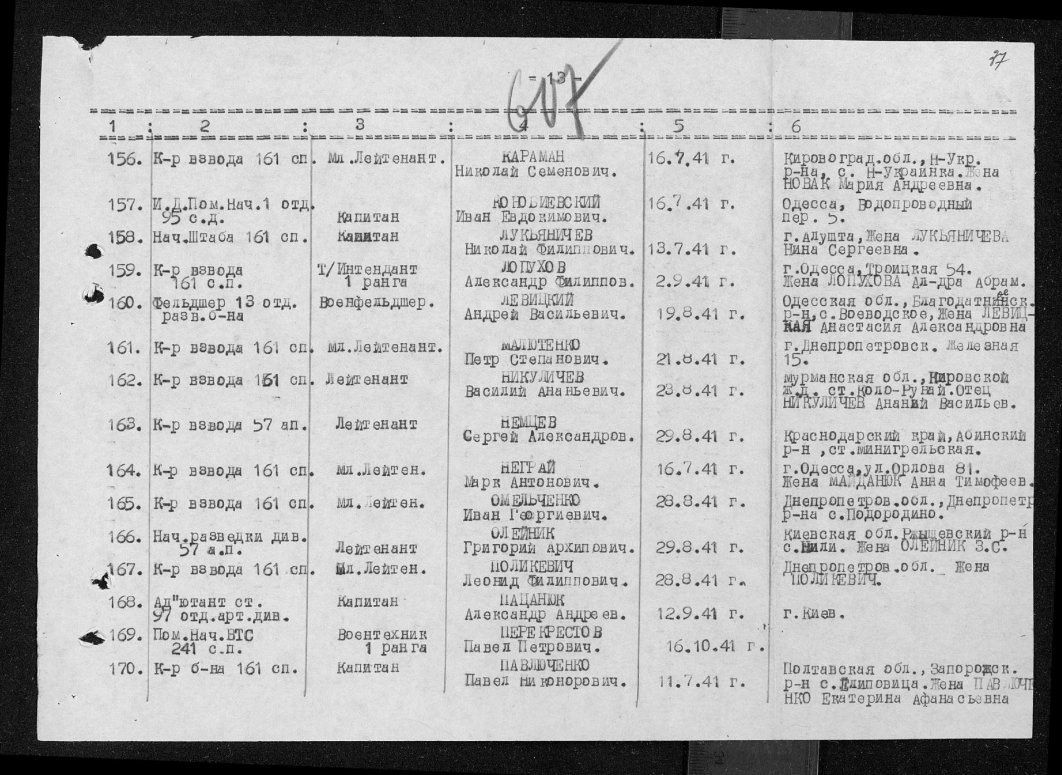 37
- 13 -
607
1 : 2 : 3 : 4 : 5 : 6
156. К-р взвода 161 сп. Мл.Лейтенант. КАРАМАН 16.7.41 г. Кировоград.обл., Н-Укр.
Николай Семенович. р-на, с. Н-Украинка.Жена
НОВАК Мария Андреевна.
157. И.Д.Пом.Нач.1 отд. КОНОВИЕВСКИЙ 16.7.41 г. Одесса, Водопроводный
95 с.д. Капитан Иван Евдокимович. пер. 5.
158. Нач.Штаба 161 сп. Капитан ЛУКЬЯНИЧЕВ г.Алушта,Жена ЛУКЬЯНИЧЕВА
Николай Филиппович. 13.7.41 г. Нина Сергеевна.
159. К-р взвода Т/Интендант ЛОПУХОВ г.Одесса,Троицкая 54.
161 с.п. 1 ранга Александр Филиппов. 2.9.41 г. Жена ЛОПУХОВА Ал-дра Абрам.
160. Фельдшер 13 отд. Военфельдшер. ЛЕВИЦКИЙ Одесская обл., Благодатнинск.
разв.б-на Андрей Васильевич. 19.8.41 г. р-н,с.Воеводское,Жена ЛЕВИЦ-
КАЯ Анастасия Александровна
161. К-р взвода 161 сп. мл.Лейтенант. МАЛЮТЕНКО г.Днепропетровск. Железная
Петр Степанович. 21.8.41 г. 15.
162. К-р взвода 161 сп. Лейтенант НИКУЛИЧЕВ Мурманская обл.,Кировской
Василий Ананьевич. 23.8.41 г. ж.д. ст.Коло-Рувай.Отец
НИКУЛИЧЕВ Ананий Васильев.
163. К-р взвода 57 ап. Лейтенант НЕМЦЕВ
Сергей Александров. 29.8.41 г. Краснодарский край,Абинский
р-н ,ст.минигрельская.
164. К-р взвода 161 сп. Мл.Лейтен. НЕГРАЙ 16.7.41 г. г.Одесса,ул.Орлова 81.
Марк Антонович. Жена МАЙДАНЮК Анна Тимофеев.
165. К-р взвода 161 сп. Мл.Лейтен. ОМЕЛЬЧЕНКО 28.8.41 г. Днепропетров.обл.,Днепропетр
Иван Георгиевич. р-на с.Подородино.
166. Нач.разведки див. ОЛЕЙНИК Киевская обл.Ржыщевский р-н
57 а.п. Лейтенант Григорий Архипович. 29.8.41 г. Жена ОЛЕЙНИК З.С.
167. К-р взвода 161 сп. Мл.Лейтен. ПОЛИКЕВИЧ Днепропетров.обл. Жена
Леонид Филиппович. 28.8.41 г. ПОЛИКЕВИЧ.
168. Ад"ютант ст. Капитан ПАЦАНЮК
97 отд.арт.див. Александр Андреев. 12.9.41 г. г.Киев.
169. Пом.Нач.ВТС Воентехник ПЕРЕКРЕСТОВ
241 с.п. 1 ранга Павел Петрович. 16.10.41 г.
170. К-р б-на 161 сп. Капитан ПАВЛЮЧЕНКО Полтавская обл., Запорожск.
Павел Никонорович. 11.7.41 г. р-н Жена ПАВЛЮЧЕ
НКО Екатерина Афанасьевна